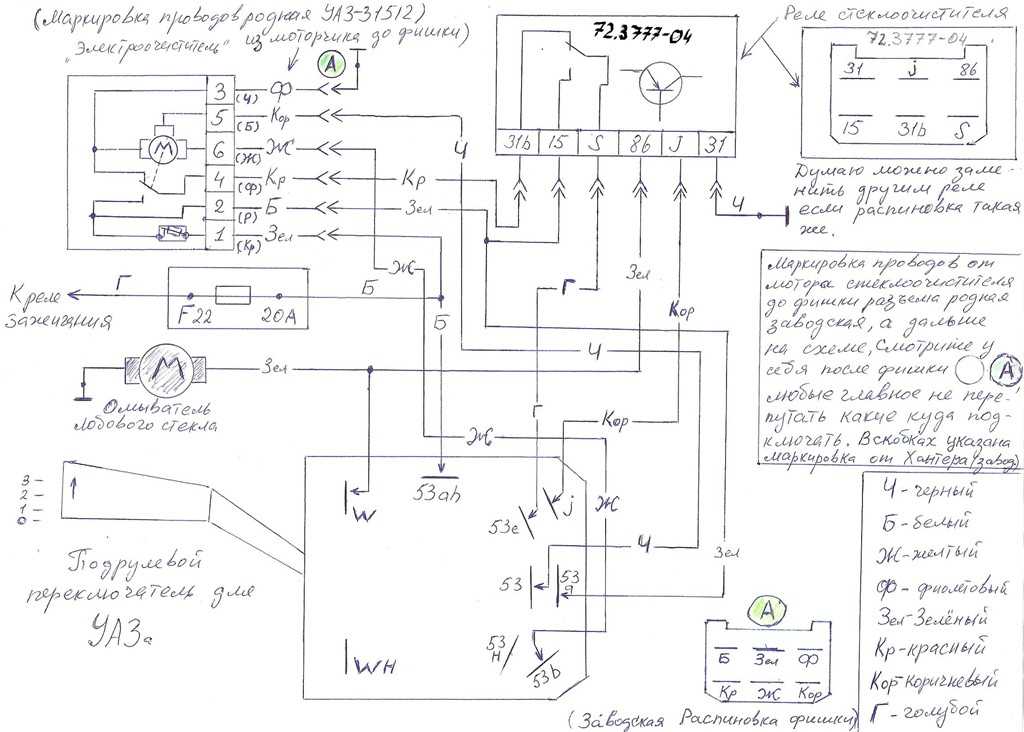 (Маркировка проводов родная УАЗ-31512)
из моторчика до фишки)
"Электроочиститель"
А
3 (Ч) Ф
5 (Б) Кор
6 (Ж) Ж
4 (Ф) Кр
2 (Р) Б
1 (Кр) Зел
М
Ч
Кр
Зел
72.3777-04
31b 15 S 86 J 31
Реле стеклоочистителя
72.3777-04
31 j 86
15 31b S
Думаю можно заме-
нить другим реле
если распиновка такая
же.
Ч
Ж
Г
Зел
Кор
К реле
зажигания
Г
F22 20А
Б
Б
М
Зел
Омыватель
лобового стекла
Ч
Г
Кор
Ж
Маркировка проводов от
мотора стеклоочистителя
до фишки разъема родная
заводская, а дальше
на схеме, смотрите у
себя после фишки А
любые главное не пере-
путать какие куда под-
ключать. В скобках указана
маркировка от Хантера (завод)
3
2
1
0
Подрулевой
переключатель для
УАЗа
W
53ah
53e
j
Ж
Ч
Зел
53
53
53
H
53b
WH
А
Б Зел Ф
Кр Ж Кор
(Заводская Распиновка фишки)
Ч-черный
Б-белый
Ж-желтый
Ф-фиолетовый
Зел-Зелёный
Кр-красный
Кор-коричневый
Г-голубой